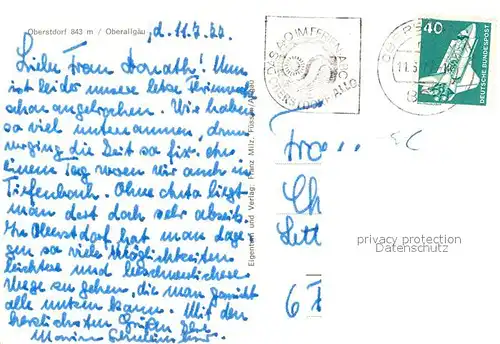 Oberstdorf 843 m / Oberallgäu
d. 11.7.
Liebe Frau Donath! Nun
ist leider unsere letzte Ferienwoche
schon angebrochen. Wir haben
so viel unternommen, drum
verging die Zeit so fix. An
einem Tag waren wir auch in
Tiefenbach. Ohne Auto liegt
man dort doch sehr abseits.
In Oberstdorf hat man dage-
gen so viele Möglichkeiten
leichtere und beschwerlichere
Wege zu gehen, die man garnicht
alle nutzen kann. Mit den
herzlichsten Grüßen Ihre
Eigentum und Verlag: Franz Milz, Füssen/Allgäu
40
DEUTSCHE BUNDESPOST
Frau
Ch
6
privacy protection
Datenschutz